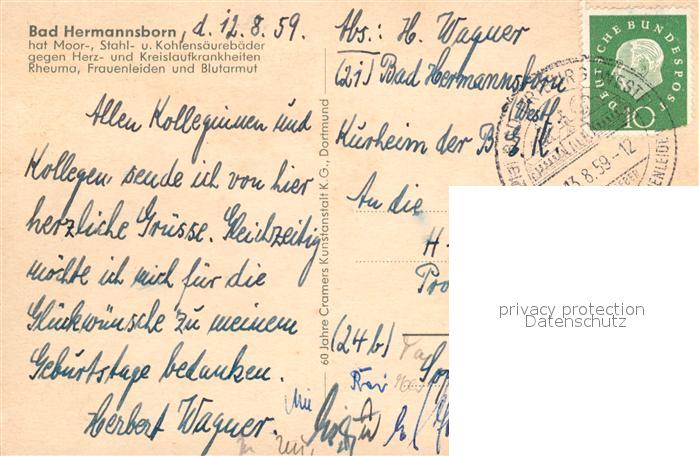 Bad Hermannsborn, d. 12.8.59.
hat Moor-, Stahl- u. Kohlensäurebäder
gegen Herz- und Kreislaufkrankheiten
Rheuma, Frauenleiden und Blutarmut
Allen Kolleginnen und
Kollegen sende ich von hier
herzliche Grüsse. Gleichzeitig
möchte ich mich für die
Glückwünsche zu meinem
Geburtstage bedanken.
Herbert Wagner.
60 Jahre Cramers Kunstanstalt K.G., Dortmund
Abs: H. Wagner
(21) Bad Hermannsborn
Westf.
Kurheim der B
An die
H
Pro
(24b)
DEUTSCHE BUNDESPOST
10
13.8.59-12
privacy protection
Datenschutz